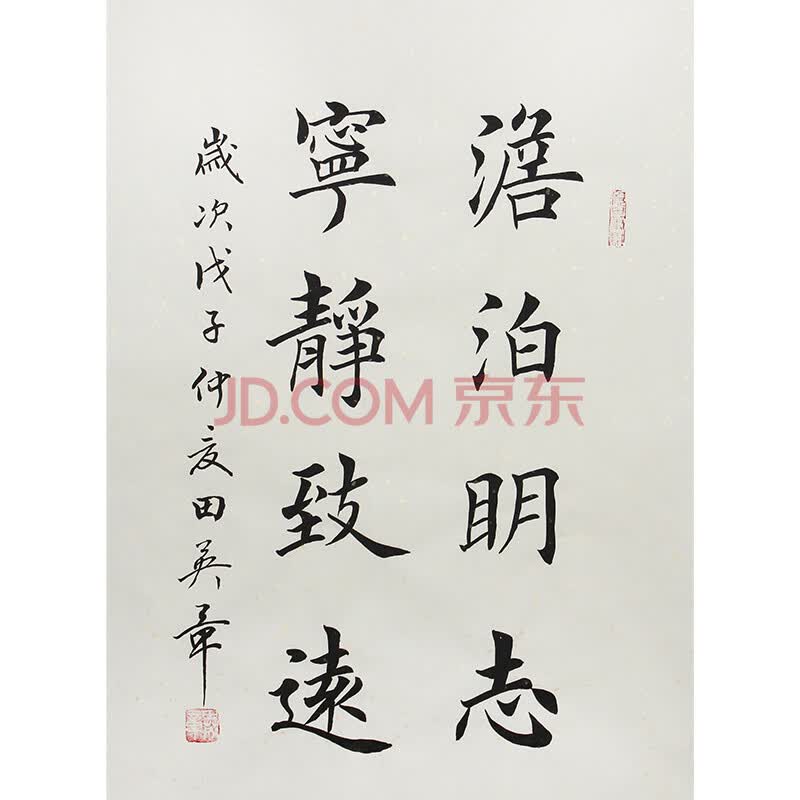 澹泊明志
寧靜致遠
歲次戊子仲夏田英章
JD.COM 京东